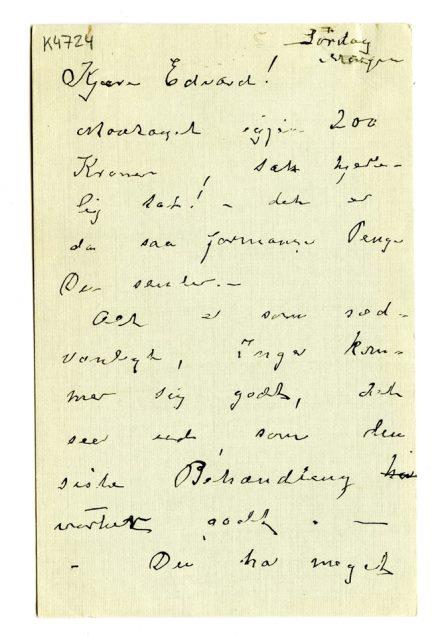 K4724
Lördag
Morgen
Kjære Edvard!
Modtaget igjen 200
Kroner, tak hjerte-
lig tak! – det er
da saa formange Penge
Du sender. –
Alt er som sed-
vanligt, Inger kom-
mer sig godt, det
seer ud, som den
siste Behandling
virket godt. —
– Du har meget